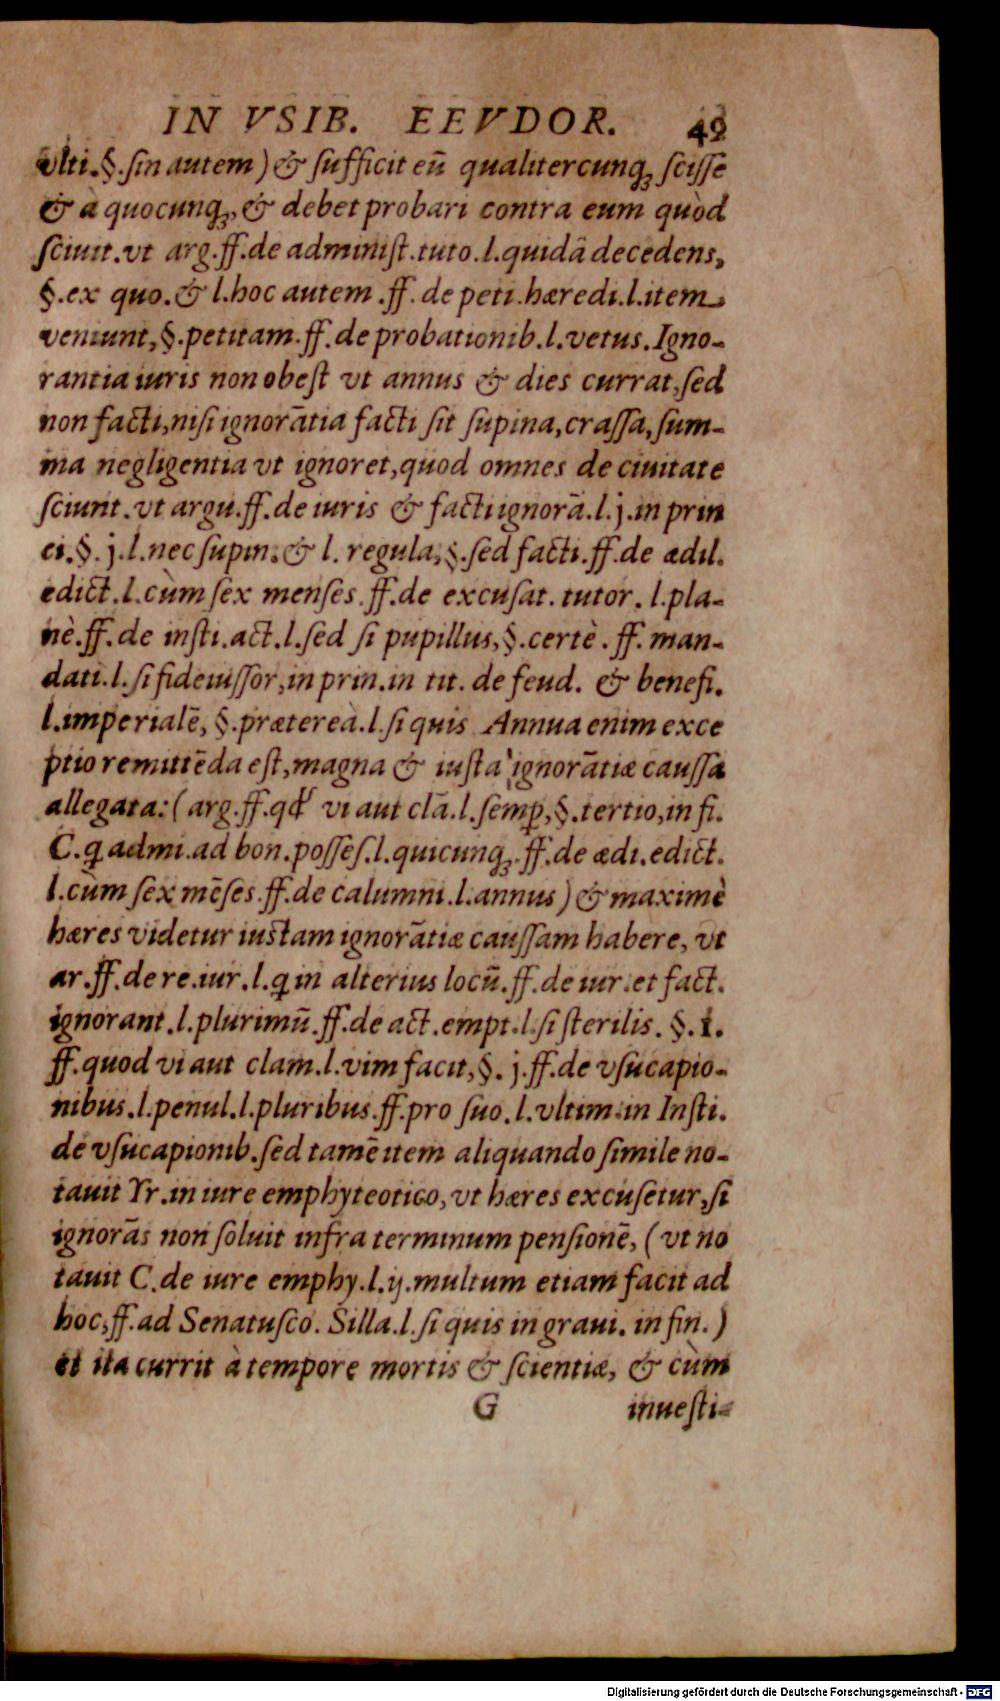 IN VSIB. EEVDOR. 49
vlti.§.sin autem) & sufficit eū qualitercunq; scisse
& à quocunq;, & debet probari contra eum quòd
sciuit. vt arg.ff.de administ.tuto.l.quidā decedens,
§.ex quo. & l.hoc autem .ff. de peti.hæredi.l.item
veniunt,§.petitam.ff.de probationib.l.vetus. Igno-
rantia iuris non obest vt annus & dies currat,sed
non facti,nisi ignorātia facti sit supina,crassa,sum-
ma negligentia vt ignoret,quod omnes de ciuitate
sciunt. vt argu.ff.de iuris & facti ignorā.l.j.in prin
ci.§.j.l.nec supin.& l. regula,§.sed facti.ff.de ædil.
edict.l.cùm sex menses.ff.de excusat. tutor. l.pla-
nè.ff.de insti.act.l.sed si pupillus,§.certè .ff. man-
dati.l.si fideiussor,in prin.in tit. de feud. & benefi.
l.imperialē, §.prætereà.l.si quis Annua enim exce
ptio remittēda est,magna & iusta ignorātiæ caussa
allegata: (arg.ff.qd vi aut clā.l.semp,§.tertio,in fi.
C.q admi.ad bon.posses.l.quicunq;.ff.de ædi.edict.
l.cùm sex mēses.ff.de calumni.l.annus) & maximè
hæres videtur iustam ignorātiæ caussam habere, vt
ar.ff.de re.iur.l.q in alterius locū.ff.de iur.et fact.
ignorant.l.plurimū.ff.de act.empt.l.si sterilis. §.i.
ff.quod vi aut clam.l.vim facit,§. j.ff.de vsucapio-
nibus.l.penul.l.pluribus.ff.pro suo.l.vltim.in Insti.
de vsucapionib.sed tamē item aliquando simile no-
tauit Yr.in iure emphyteotico, vt hæres excusetur,si
ignorās non soluit infra terminum pensionē, (vt no
tauit C.de iure emphy.l.ij.multum etiam facit ad
hoc,ff.ad Senatusco. Silla.l.si quis in graui. in fin.)
et ita currit à tempore mortis & scientiæ, & cùm
G inuesti-
Digitalisierung gefördert durch die Deutsche Forschungsgemeinschaft - DFG